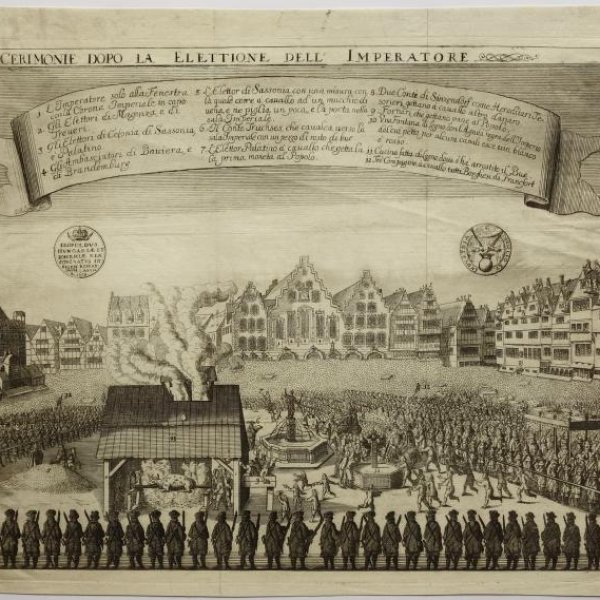 CERIMONIE DOPO LA ELETTIONE DELL' IMPERATORE
1 L'Imperatore solo alla Fenestra
con la Corona Imperiale in capo
2 Gli Elettori di Magonza e di
Treveri
3 Gli Elettori di Colonia di Sassonia,
e Palatino
4 Gli Ambasciatori di Baviera, e
di Brandemburg
5 L'Elettor di Sassonia con una misura con
la quale corre a cavallo ad un mucchio di
vena, e ne piglia, un poca, e la porta nella
sala Imperiale
6 Il Conte Truchses che cavalca verso la
sala Imperiale con un pezzo di rosto du bue
7 L'Elettor Palatino a cavallo che getta la
la prima moneta al Popolo.
8 Due Conte di Sinzendorf come Hereditari Te,
sorieri gettano a cavallo altro danaro
9 Fornari che gettano pane al Popolo
e rosso
11 Cucina fatta di legno dove è arrostito il Bue
12 Tre Compagnie a cavallo tutti Borghesi di Francfort
LEOPOLDVS
11